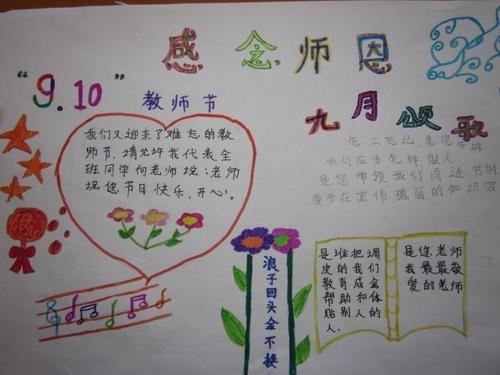 感念师恩
“9.10”
教师节
九月颂歌
我们又迎来了难忘的教
师节,请允许我代表全
班同学向老师说:老师
祝您节日快乐,开心。
怎么忘记 是您
我们应当怎样做人
是您带领我们闯进书的
遨步在宏伟瑰丽的知识宫
浪子回头金不换
是谁把调
皮的我们
教育成会
帮助和体
贴别人的
人.
是您,老师
我最最敬
爱的老师